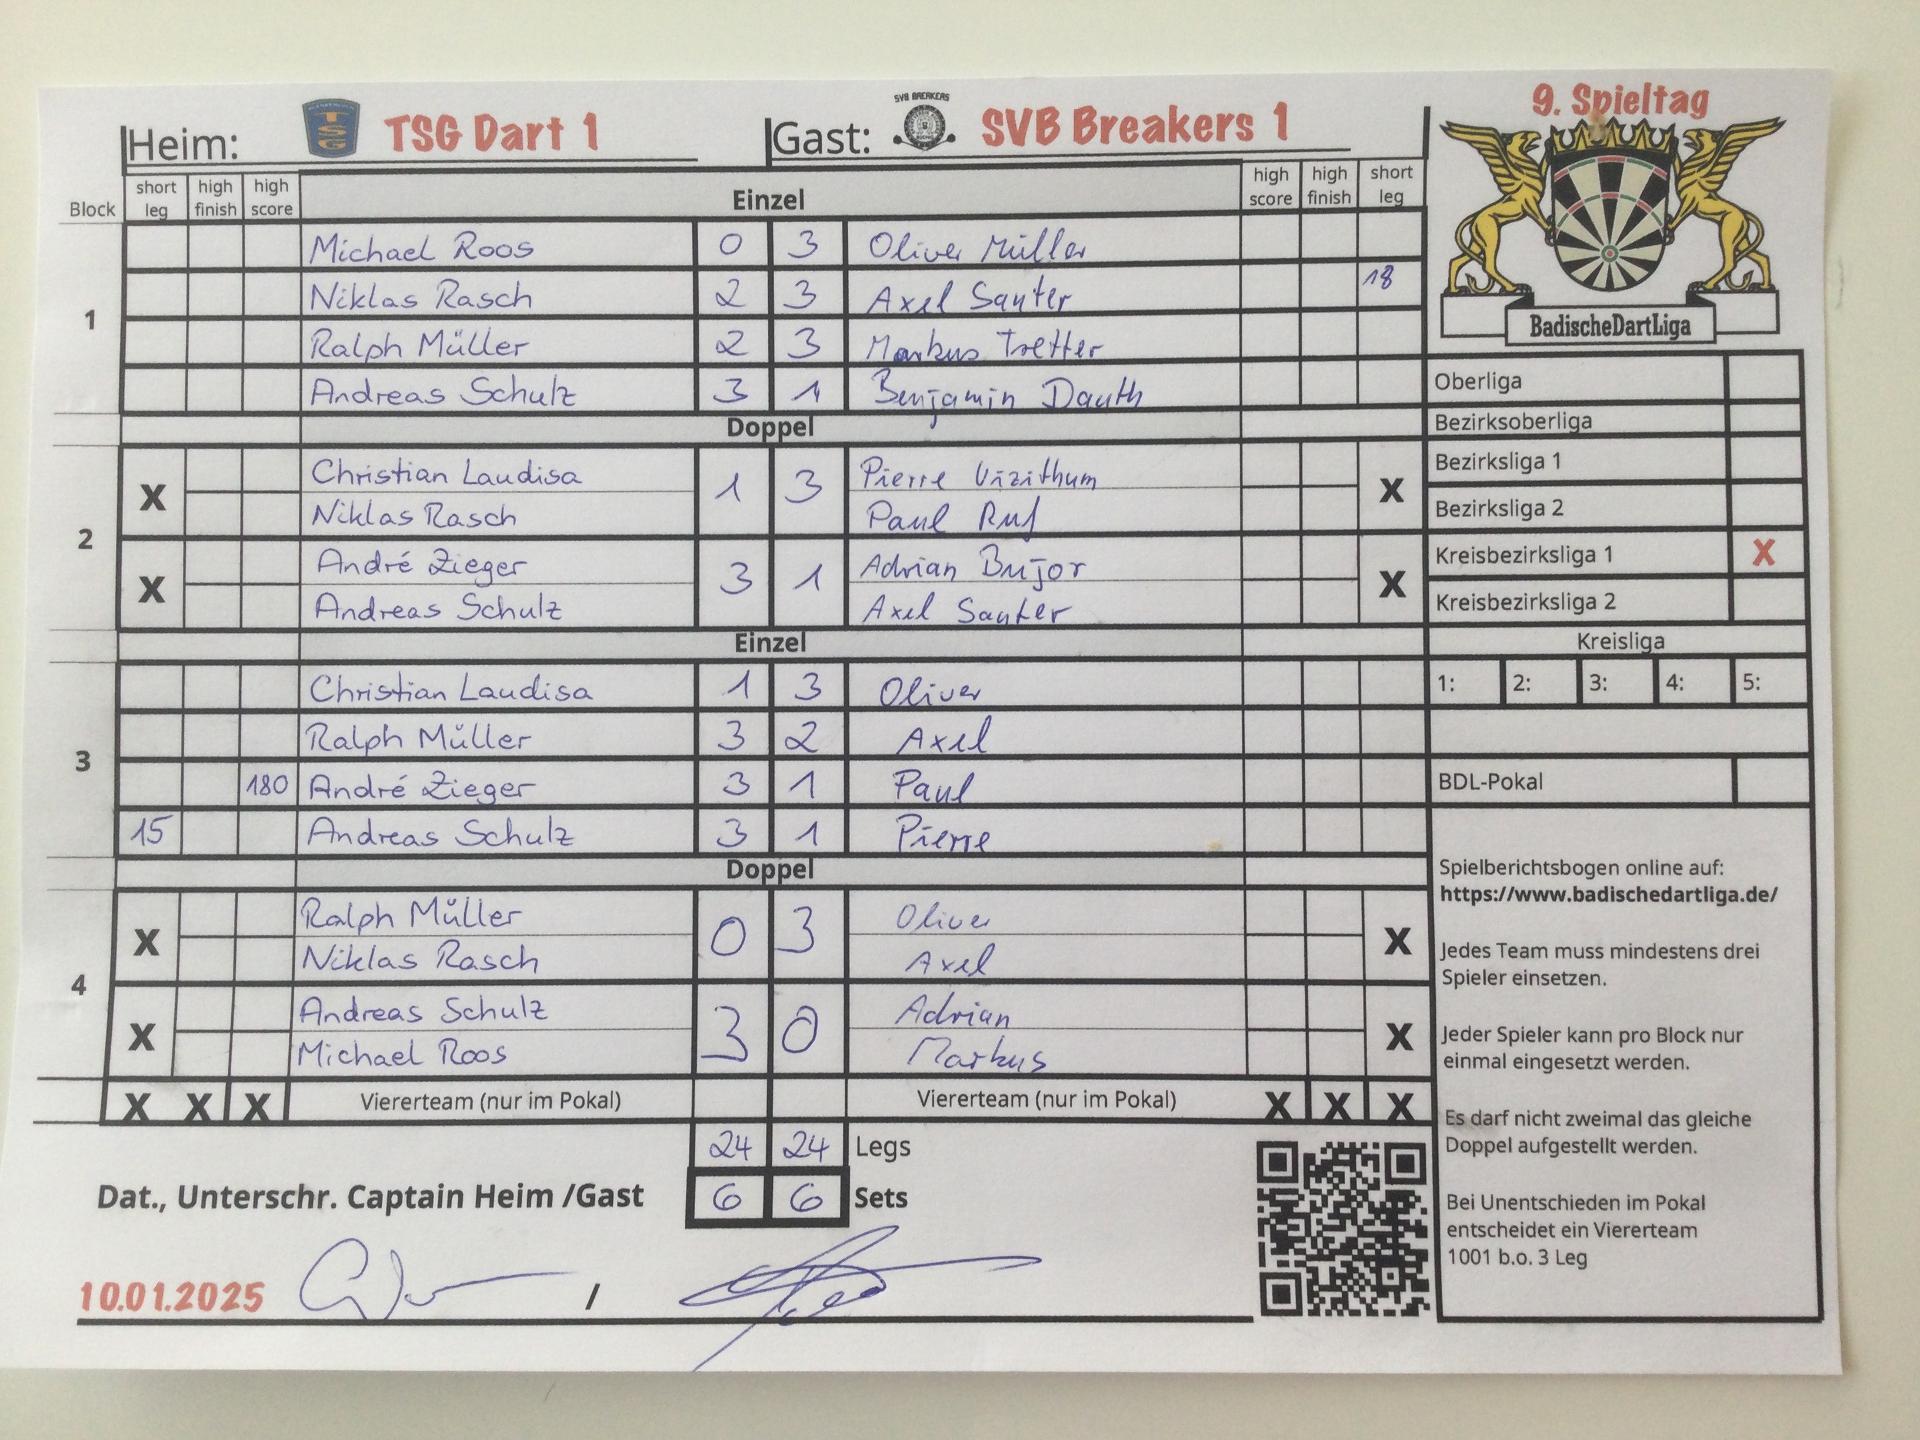 9. Spieltag
Heim: TSG TSG Dart 1 Gast: SVB BREAKERS SVB Breakers 1
Block short leg high finish high score Einzel high score high finish short leg
BadischeDartLiga
1
Michael Roos 0 3 Oliver Müller
Niklas Rasch 2 3 Axel Sauter 18
Ralph Müller 2 3 Markus Tretter
Andreas Schulz 3 1 Benjamin Dauth
Doppel
2
X Christian Laudisa 1 3 Pierre Vizithum X
Niklas Rasch Paul Ruf
X André Zieger 3 1 Adrian Bujor X
Andreas Schulz Axel Sauter
Einzel
3
Christian Laudisa 1 3 Oliver
Ralph Müller 3 2 Axel
180 André Zieger 3 1 Paul
15 Andreas Schulz 3 1 Pierre
Doppel
4
X Ralph Müller 0 3 Oliver X
Niklas Rasch Axel
X Andreas Schulz 3 0 Adrian X
Michael Roos Markus
X X X Viererteam (nur im Pokal) Viererteam (nur im Pokal) X X X
24 24 Legs
Dat., Unterschr. Captain Heim /Gast 6 6 Sets
10.01.2025 /
Oberliga
Bezirksoberliga
Bezirksliga 1
Bezirksliga 2
Kreisbezirksliga 1 X
Kreisbezirksliga 2
Kreisliga
1: 2: 3: 4: 5:
BDL-Pokal
Spielberichtsbogen online auf:
https://www.badischedartliga.de/
Jedes Team muss mindestens drei
Spieler einsetzen.
Jeder Spieler kann pro Block nur
einmal eingesetzt werden.
Es darf nicht zweimal das gleiche
Doppel aufgestellt werden.
Bei Unentschieden im Pokal
entscheidet ein Viererteam
1001 b.o. 3 Leg